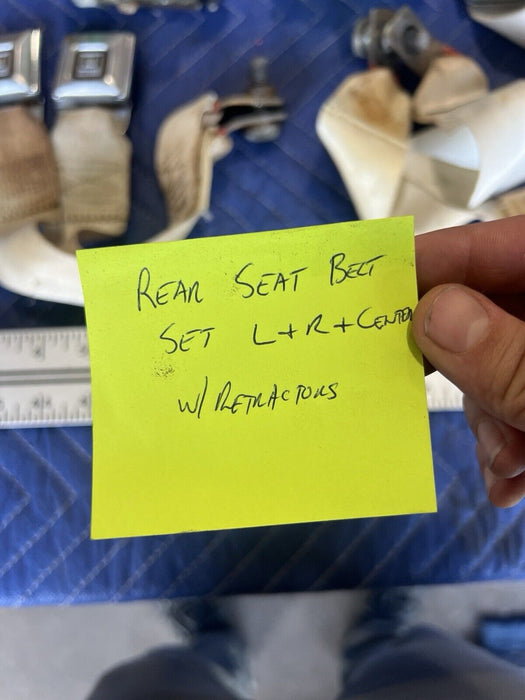 REAR SEAT BELT
SET L+R+CENTER
W/ RETRACTORS